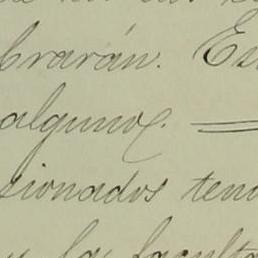 brarán. Es
algunos. =
sionados ten
y la faculta